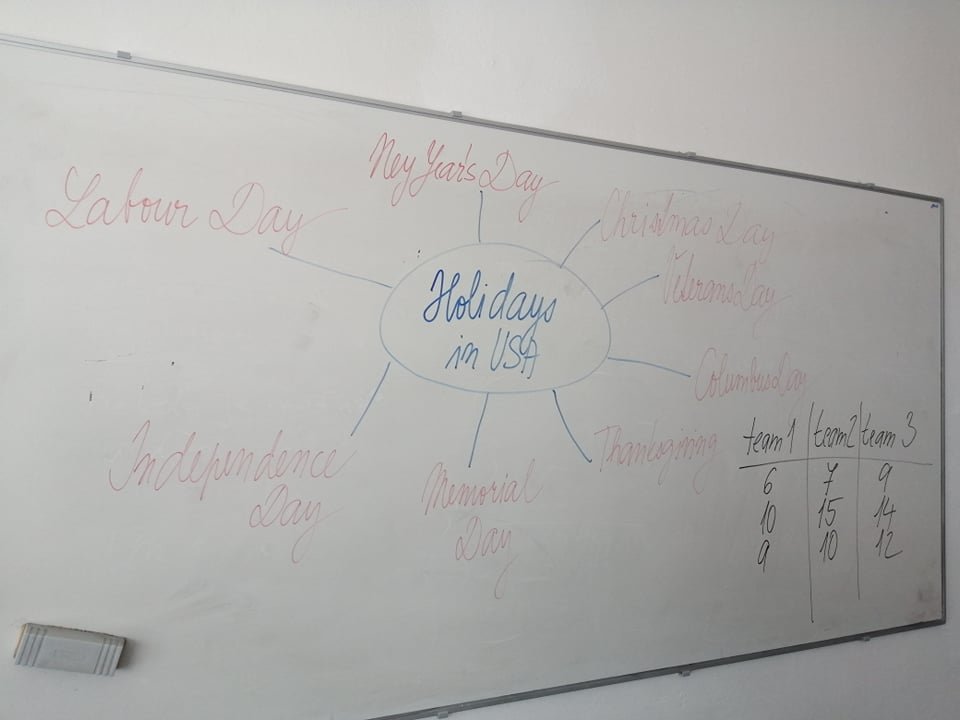 Ney Year's Day
Labour Day
Christmas Day
Veterans Day
Holidays
in USA
Columbus Day
Independence
Day
Memorial
Day
Thanksgining
team 1 team 2 team 3
6 7 9
10 15 14
9 10 12